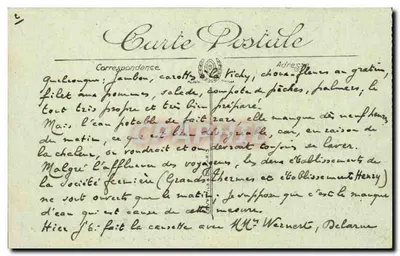 2/
Carte Postale
Correspondance Adresse
quelconque; jambon, carottes à la Vichy, choux-fleurs au gratin,
filet aux pommes, salade, compote de pêches, palmiers, le
tout très propre et très bien préparé.
Mais l'eau potable se fait rare. Elle manque dès neuf heures
du matin, ce qui est car, en raison de
la chaleur, on voudrait et on devrait toujours se laver.
Malgré l'affluence des voyageurs, les deux établissements de
la Société fermière (Grands thermes et établissement Henry)
ne sont ouverts que le matin; je suppose que c'est le manque
d'eau qui est cause de cette mesure.
Hier j'ai fait la causette avec MMrs Delarue